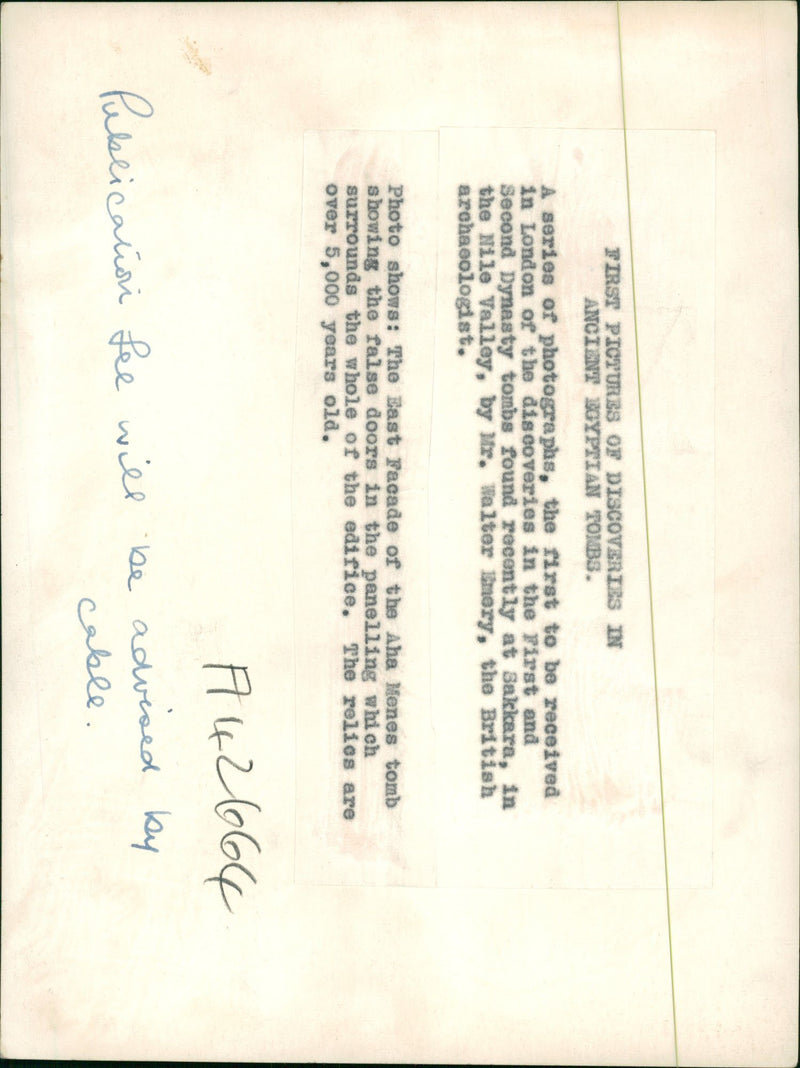 FIRST PICTURES OF DISCOVERIES IN
ANCIENT EGYPTIAN TOMBS.
A series of photographs, the first to be received
in London of the discoveries in the First and
Second Dynasty tombs found recently at Sakkara, in
the Nile Valley, by Mr. Walter Emery, the British
archaeologist.
Photo shows: The East Facade of the Aha Menes tomb
showing the false doors in the panelling which
surrounds the whole of the edifice. The relics are
over 5,000 years old.
A42664
Publication fee will be advised by
cable.